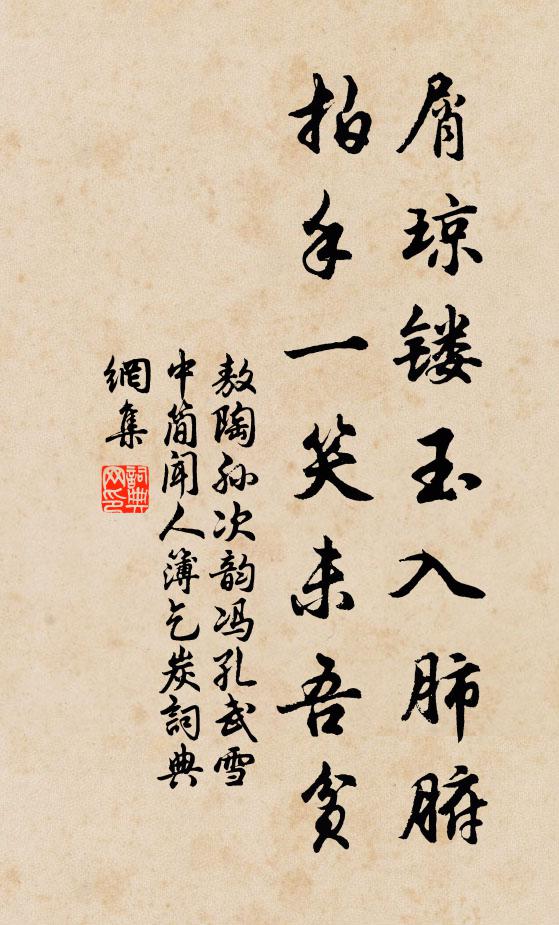 屑琼镂玉入肺腑
拍手一笑未吾贫
敖陶孙次韵冯孔武雪
中简闻人簿乞炭詞典
網集
詞典
网印